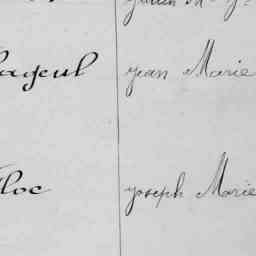 ageul Jean Marie
loc Joseph Marie